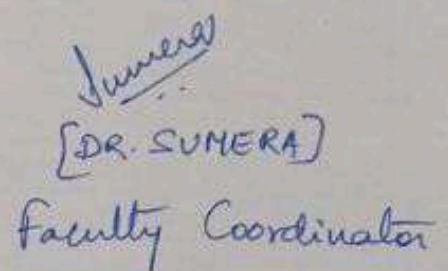 Sumera
[DR. SUMERA]
Faculty Coordinator